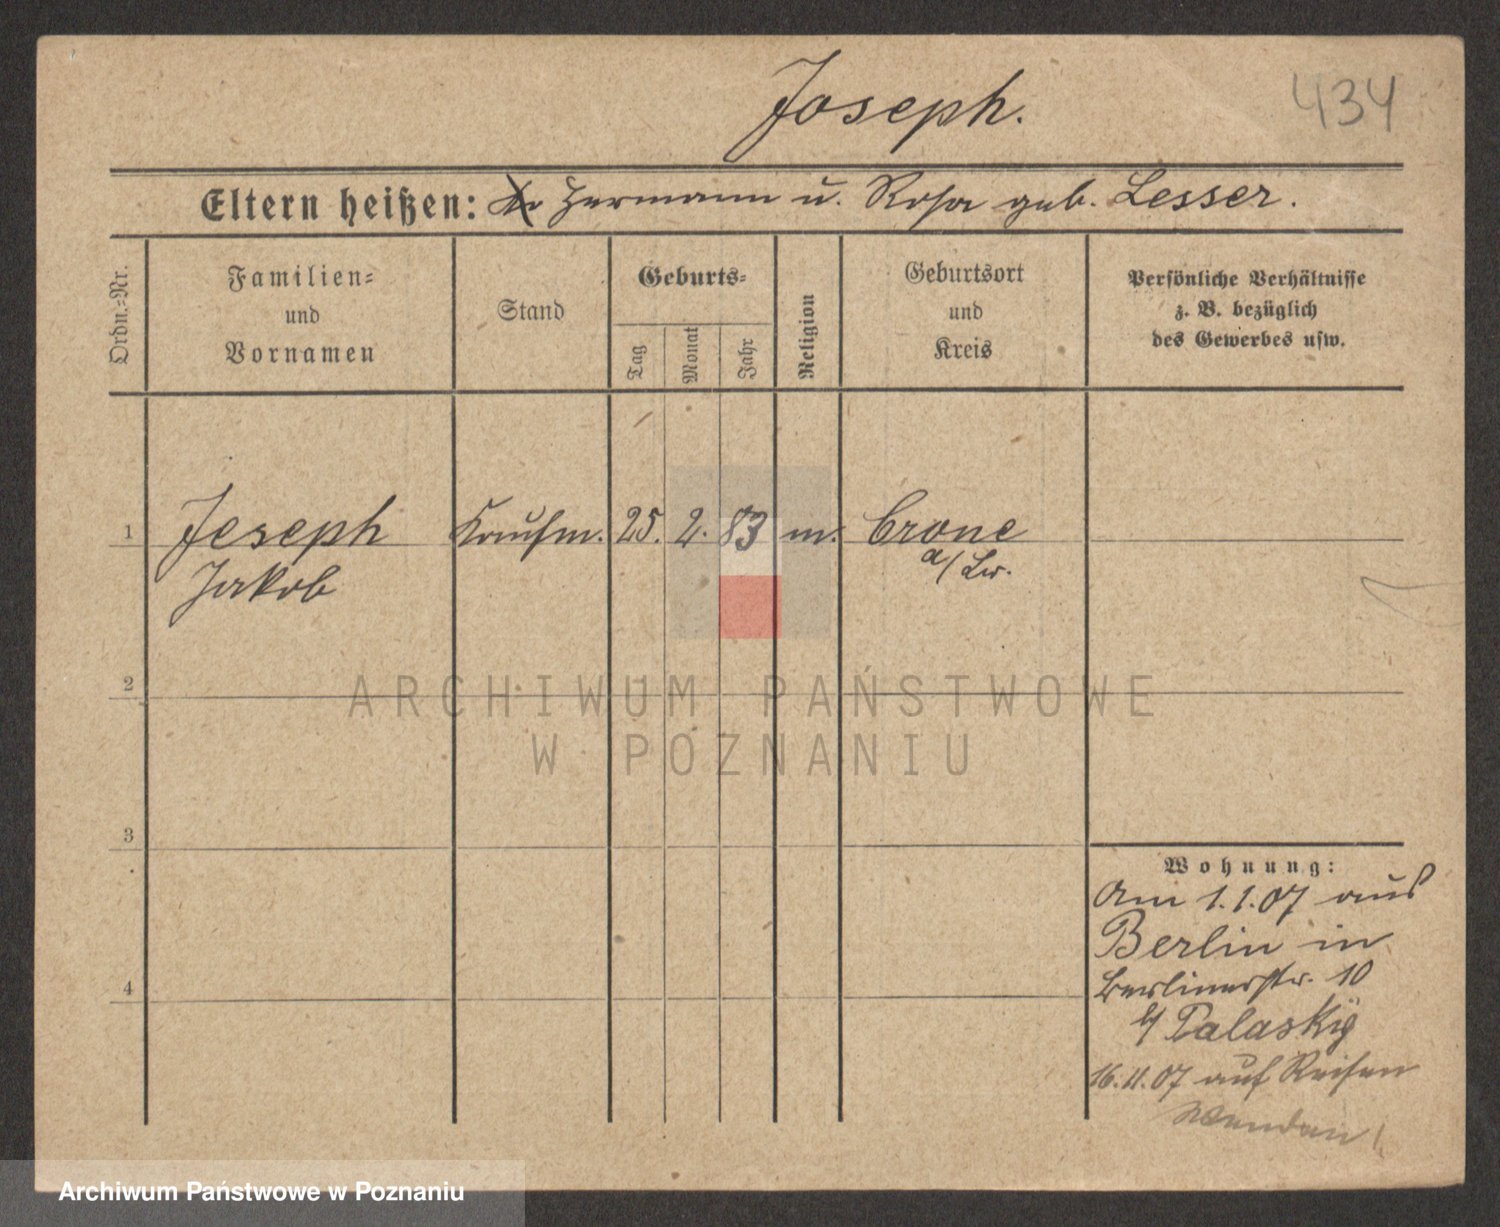 Joseph.
434
Eltern heißen: Hermann u. Rosa geb. Lesser.
Ordn.-Nr.
Familien-
und
Vornamen
Stand
Geburts-
Tag
Monat
Jahr
Religion
Geburtsort
und
Kreis
Persönliche Verhältnisse
z. B. bezüglich
des Gewerbes usw.
1 Joseph Kaufm. 25. 2. 83 m. Crone
Jakob a/Br.
2
3
4
ARCHIWUM PAŃSTWOWE
W POZNANIU
Wohnung:
Am 1.1.07 aus
Berlin in
Berlinerstr. 10
b/ Palasky
16.11.07 auf Reisen
Wenden!
Archiwum Państwowe w Poznaniu